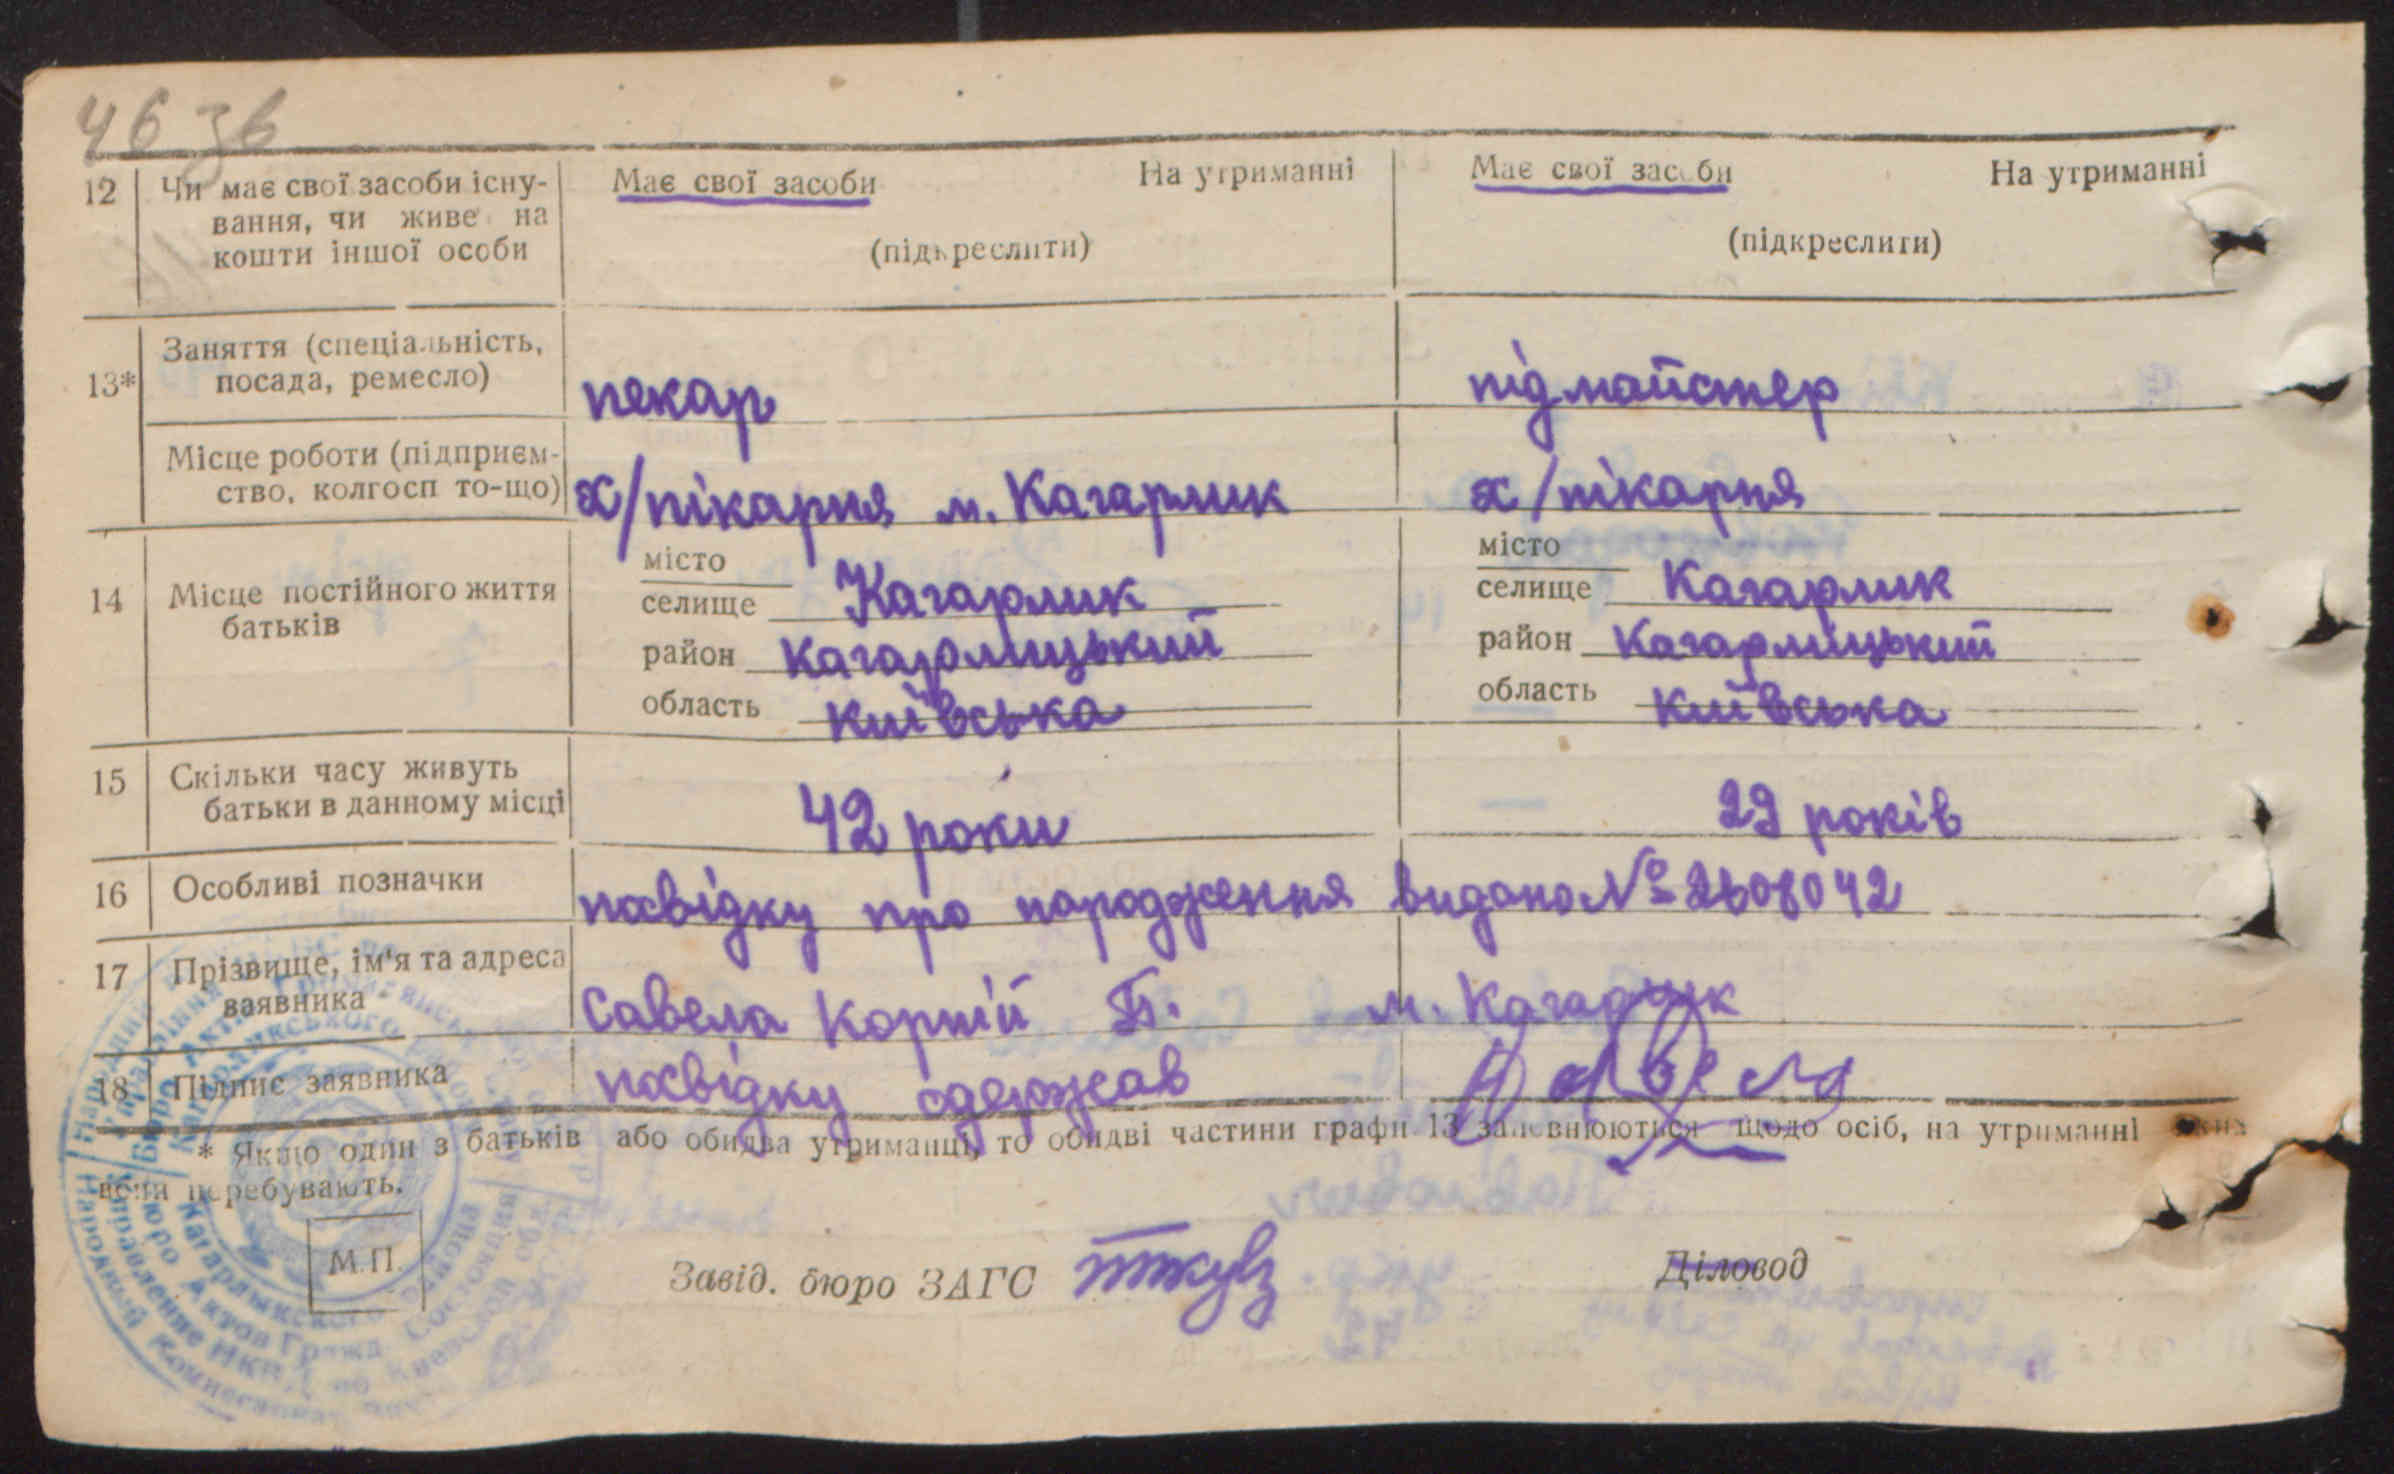 46 зв
12 Чи має свої засоби існу- Має свої засоби На утриманні Має свої засоби На утриманні
вання, чи живе на
кошти іншої особи (підкреслити) (підкреслити)
Заняття (спеціальність,
13* посада, ремесло) пекар підмайстер
Місце роботи (підприєм-
ство, колгосп то-що) х/пікарня м. Кагарлик х/пікарня
місто місто
14 Місце постійного життя селище Кагарлик селище Кагарлик
батьків район Кагарлицький район Кагарлицький
область київська область київська
15 Скільки часу живуть
батьки в данному місці 42 роки 22 років
16 Особливі позначки посвідку про народження видано № 2608042
17 Прізвище, ім'я та адреса
заявника Савела Корній Т. м. Кагарлик
18 Підпис заявника посвідку одержав Савела
* Якщо один з батьків або обидва утриманці, то обидві частини графи 13 заповнюються щодо осіб, на утриманні яких
вони перебувають.
М.П. Завід. бюро ЗАГС Діловод